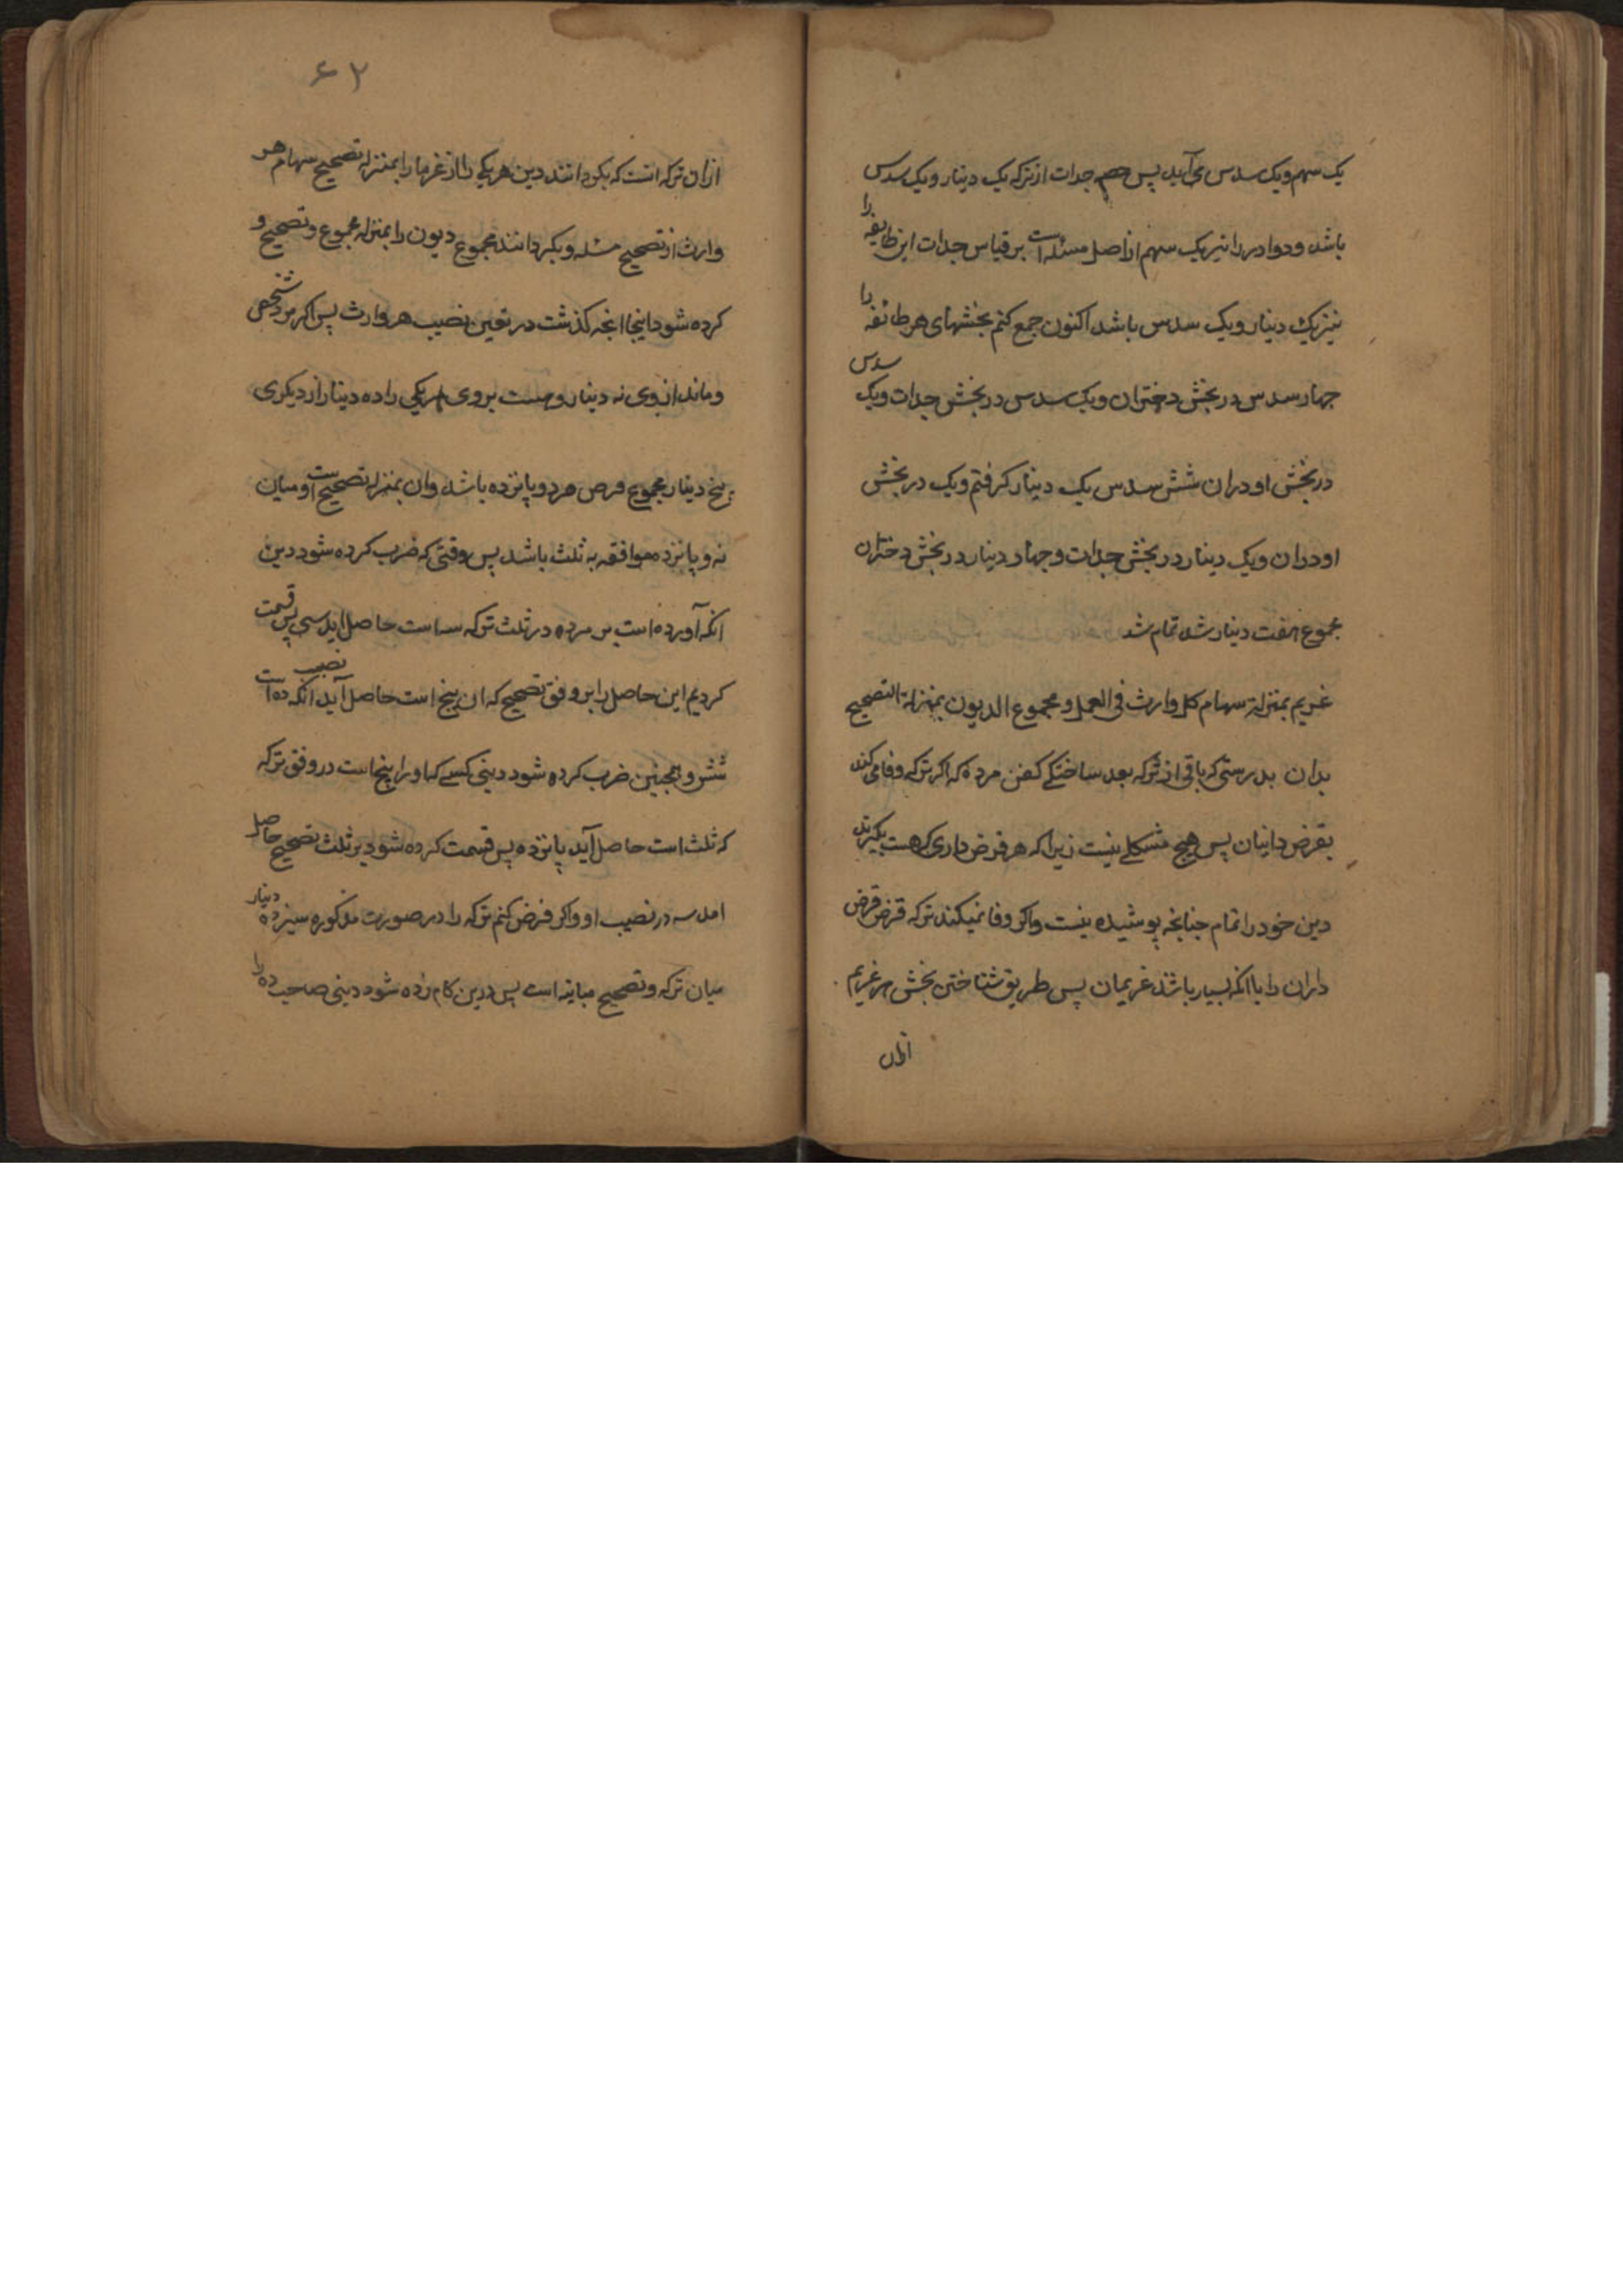 یک سهم و یک سدس می آید پس حصه جدات از ترکه یک دینار و یک سدس
باشد و دو ادر را نیز یک سهم از اصل مسئله است بر قیاس جدات این طایفه را
نیز یک دینار و یک سدس باشد اکنون جمع کنم بخشهای هر طائفه را
چهار سدس در بخش دختران و یک سدس در بخش جدات و یک سدس
در بخش اودران شش سدس یک دینار گرفتم و یک در بخش
اودران و یک دینار در بخش جدات و چهار دینار در بخش دختران
مجموع هفت دینار شد تمام شد
غریم بمنزلة سهام کل وارث فی العمل و مجموع الدیون بمنزلة التصحیح
بدان بدرستی که باقی از ترکه بعد ساختکے کفن مرده که اگر ترکه وفا می کند
بقرض داینان پس هیچ مشکلے نیست زیرا که هر قرض داری که هست بگیرند
دین خود را تمام چنانچه پوشیده نیست و اگر وفا نمیکند ترکه قرض قرض
داران را با آنکه بسیار باشند غریمان پس طریق شناختن بخش هر غریم
ازان
۶۲
ازان ترکه انست که بگردانند دین هر یکی را از غرما را بمنزله تصحیح سهام هر
وارث از تصحیح مسئله و بگردانند مجموع دیون را بمنزله مجموع و تصحیح و
کرده شود اینجا انچه گذشت در تعین نصیب هر وارث پس اگر مرد شخصی
و ماند از وی نه دینار و هست بر وی مر یکی را ده دینار از دیگری
پنج دینار مجموع قرض هر دو پانزده باشد وان بمنزله تصحیح است و میان
نه و پانزده موافقه به ثلث باشد پس وقتی که ضرب کرده شود دین
انکه آورده است بر مرده در ثلث ترکه سه است حاصل اید سی پس قسمت
کردیم این حاصل را بر وفق تصحیح که ان پنج است حاصل آید نصیب انکه ده است
شش و همچنین ضرب کرده شود دینی کسے که او را پنج است در وفق ترکه
که ثلث است حاصل آید پانزده پس قسمت کرده شود بر ثلث تصحیح حاصل
امد سه در نصیب او و اگر فرض کنم ترکه را در صورت مذکوره سیزده دینار
میان ترکه و تصحیح مباینه است پس درین کام زده شود دینی صاحب ده را